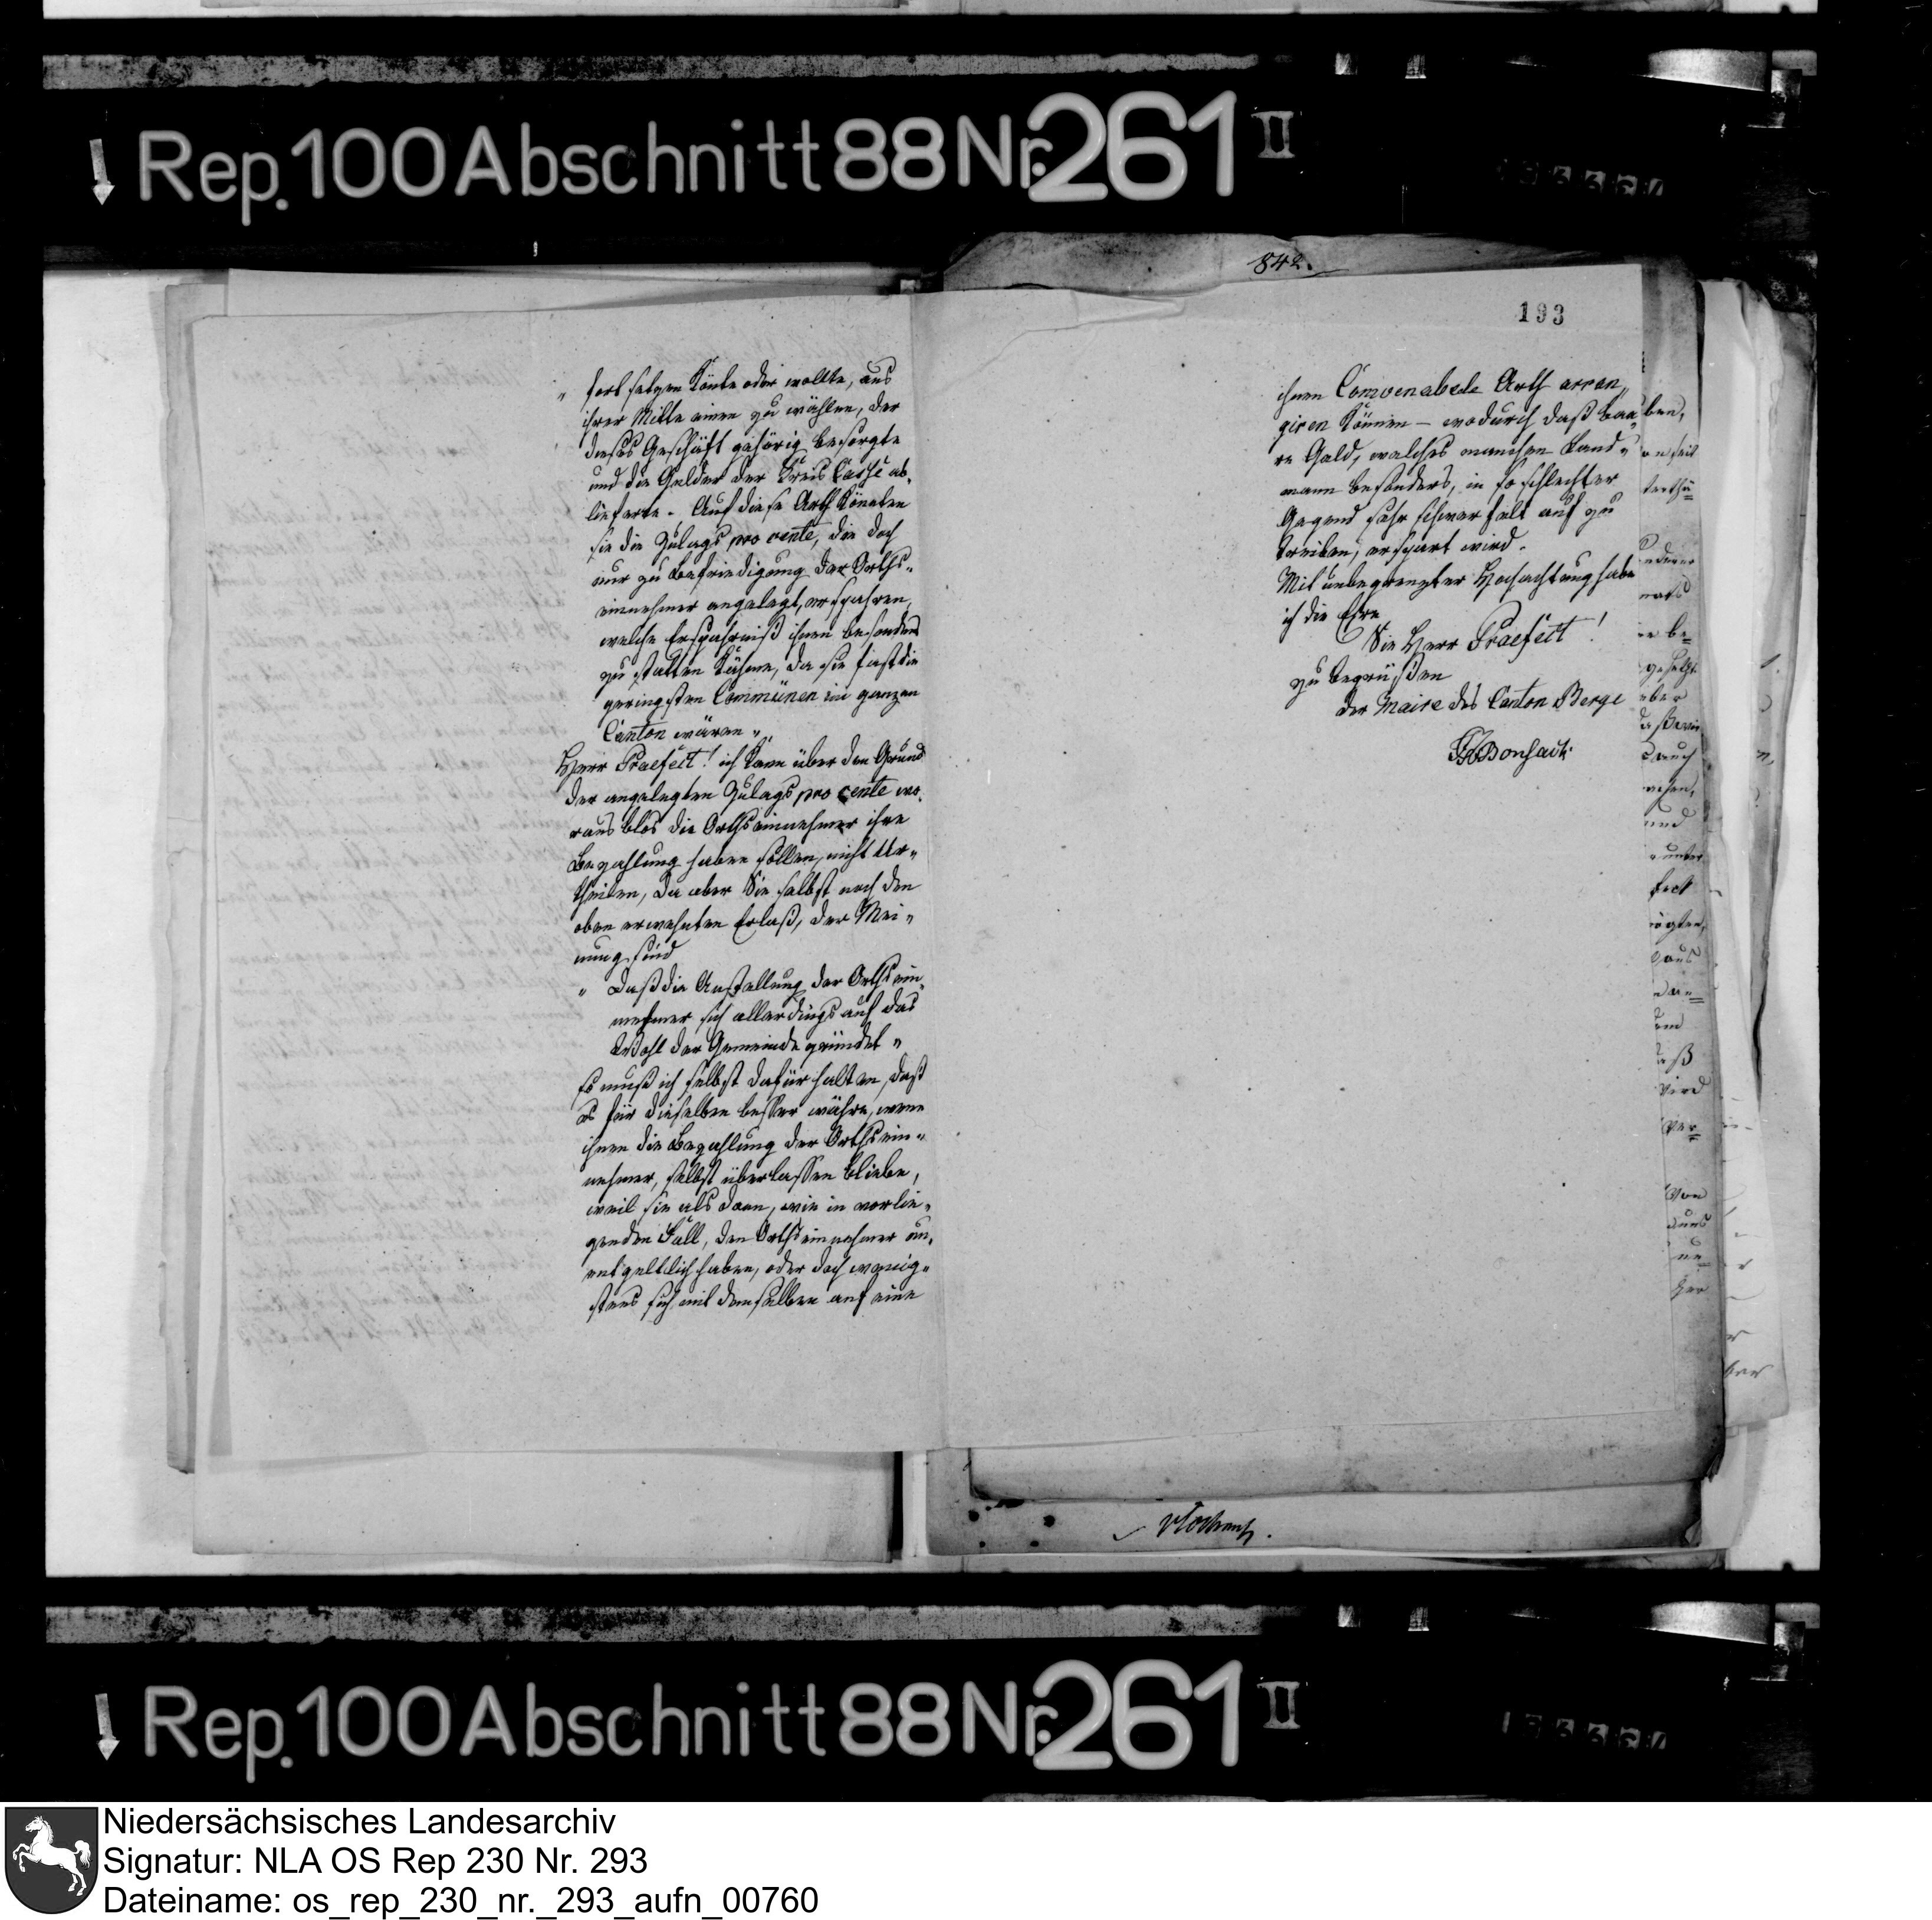 Rep. 100 Abschnitt 88 Nr. 261 II
842.
193
" fortsetzen könte oder wollte, aus
ihrer Mitte einen zu wählen, der
dieses Geschäft gehörig besorgte
und die Gelder der Kreis Casse ab-
lieferte. Auf diese Arth könnten
sie die Zulags pro cente, die doch
nur zu Befriedigung der Orths-
einnehmer angelegt, ersparen,
welche Ersparniß ihnen besonders
zu statten kähme, da sie fast die
geringsten Communen im ganzen
Canton wären "
Herr Praefect! ich kann über den Grund
der angelegten Zulags pro cente wo-
raus blos die Orthseinnehmer ihre
Bezahlung haben sollen, nicht Ur-
theilen, da aber Sie selbst nach den
oben erwehnten Erlaß, der Mei-
nung sind
" Daß die Anstellung der Orthsein-
nehmer sich allerdings auf das
Wohl der Gemeinde gründet "
so muß ich selbst dafür halten, daß
es für dieselben besser währe, wenn
ihnen die Bezahlung der Orthsein-
nehmer, selbst überlassen bliebe,
weil sie als dann, wie in vorlie-
genden Fall, den Orthseinnehmer un-
entgeltlich haben, oder doch wenig-
stens sich mit demselben auf eine
ihnen Convenabele Arth arran-
giren können – wodurch daß baa-
re Geld, welches manchen Land-
mann besonders, in so schlechter
Gegend sehr schwer falt auf zu
treiben, erspart wird.
Mit unbegrenzter Hochachtung habe
ich die Ehre
Sie Herr Praefect!
zu begrüßen
der Maire des Canton Berge
Bonsack
Rep. 100 Abschnitt 88 Nr. 261 II
Niedersächsisches Landesarchiv
Signatur: NLA OS Rep 230 Nr. 293
Dateiname: os_rep_230_nr._293_aufn_00760